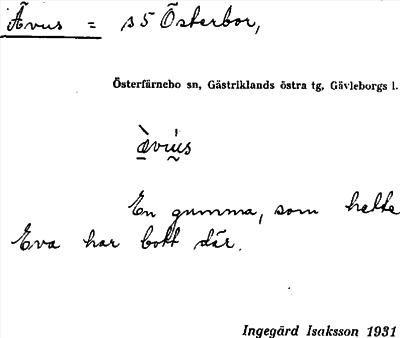 Ävus = s 5 Österbor,
Österfärnebo sn, Gästriklands östra tg, Gävleborgs l.
En gumma, som hette
Eva har bott där.
Ingegärd Isaksson 1931